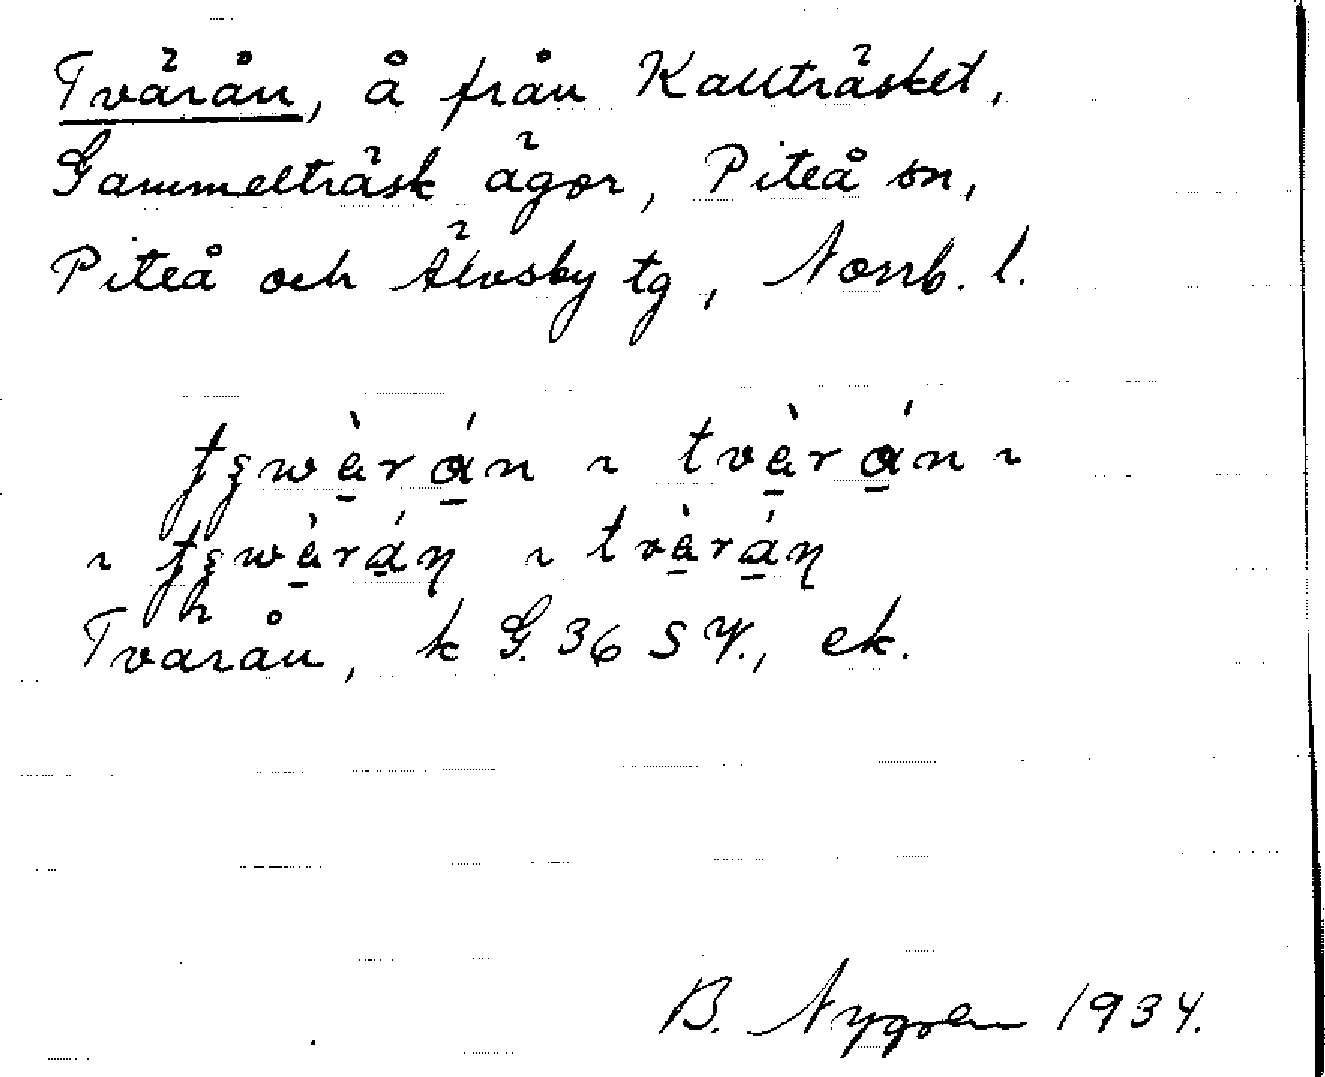 Tvärån, å från Kallträsket,
Gammelträsk ägor, Piteå sn,
Piteå och Älvsby tg, Norrb. l.
tʂwà̱rá̱n ~ tvà̱rá̱n ~
~ tʂwà̱rá̱ŋ ~ tvà̱rá̱ŋ
Tvärån, k G. 36 S V., ek.
B. Nygren 1934.